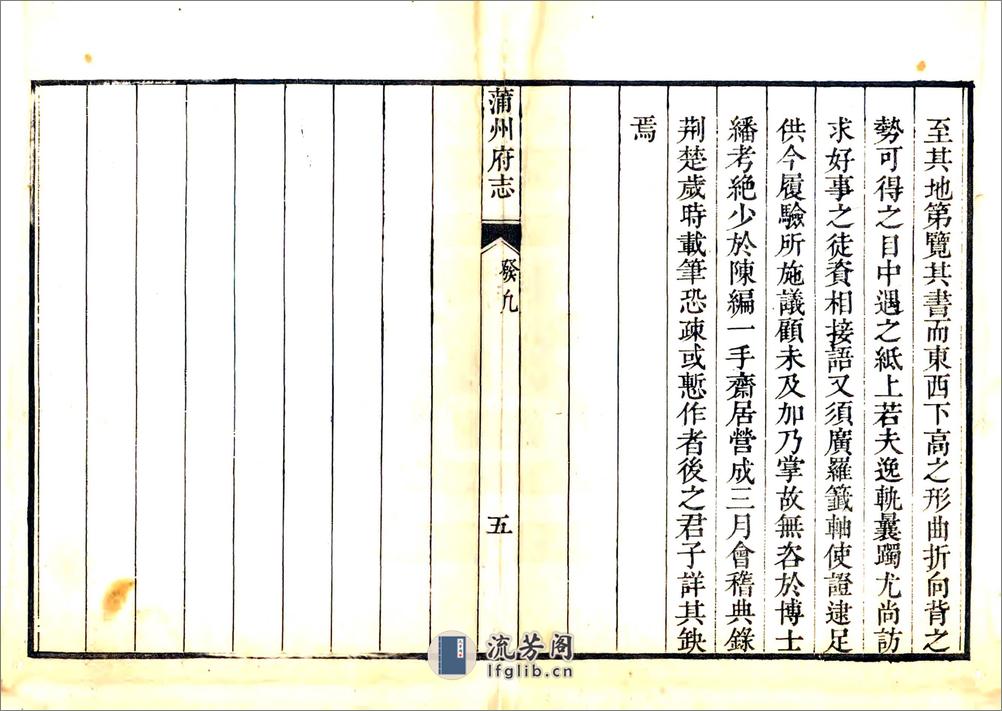 至其地第覽其書而東西下高之形曲折向背之
勢可得之目中遇之紙上若夫逸軌曩躅尤尚訪
求好事之徒資相接語又須廣羅籤軸使證逮足
供今履驗所施議顧未及加乃掌故無咨於博士
繙考絶少於陳編一手齋居營成三月會稽典錄
荆楚歲時載筆恐疎或慙作者後之君子詳其缺
焉
蒲州府志
發凡
五
流芳阁
lfglib.cn